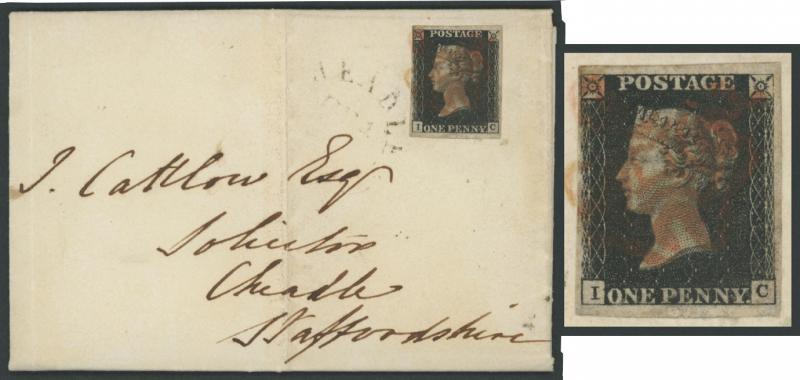 POSTAGE
I ONE PENNY. C
J. Cattlow Esqr
Solicitor
Cheadle
Staffordshire
POSTAGE
I ONE PENNY. C